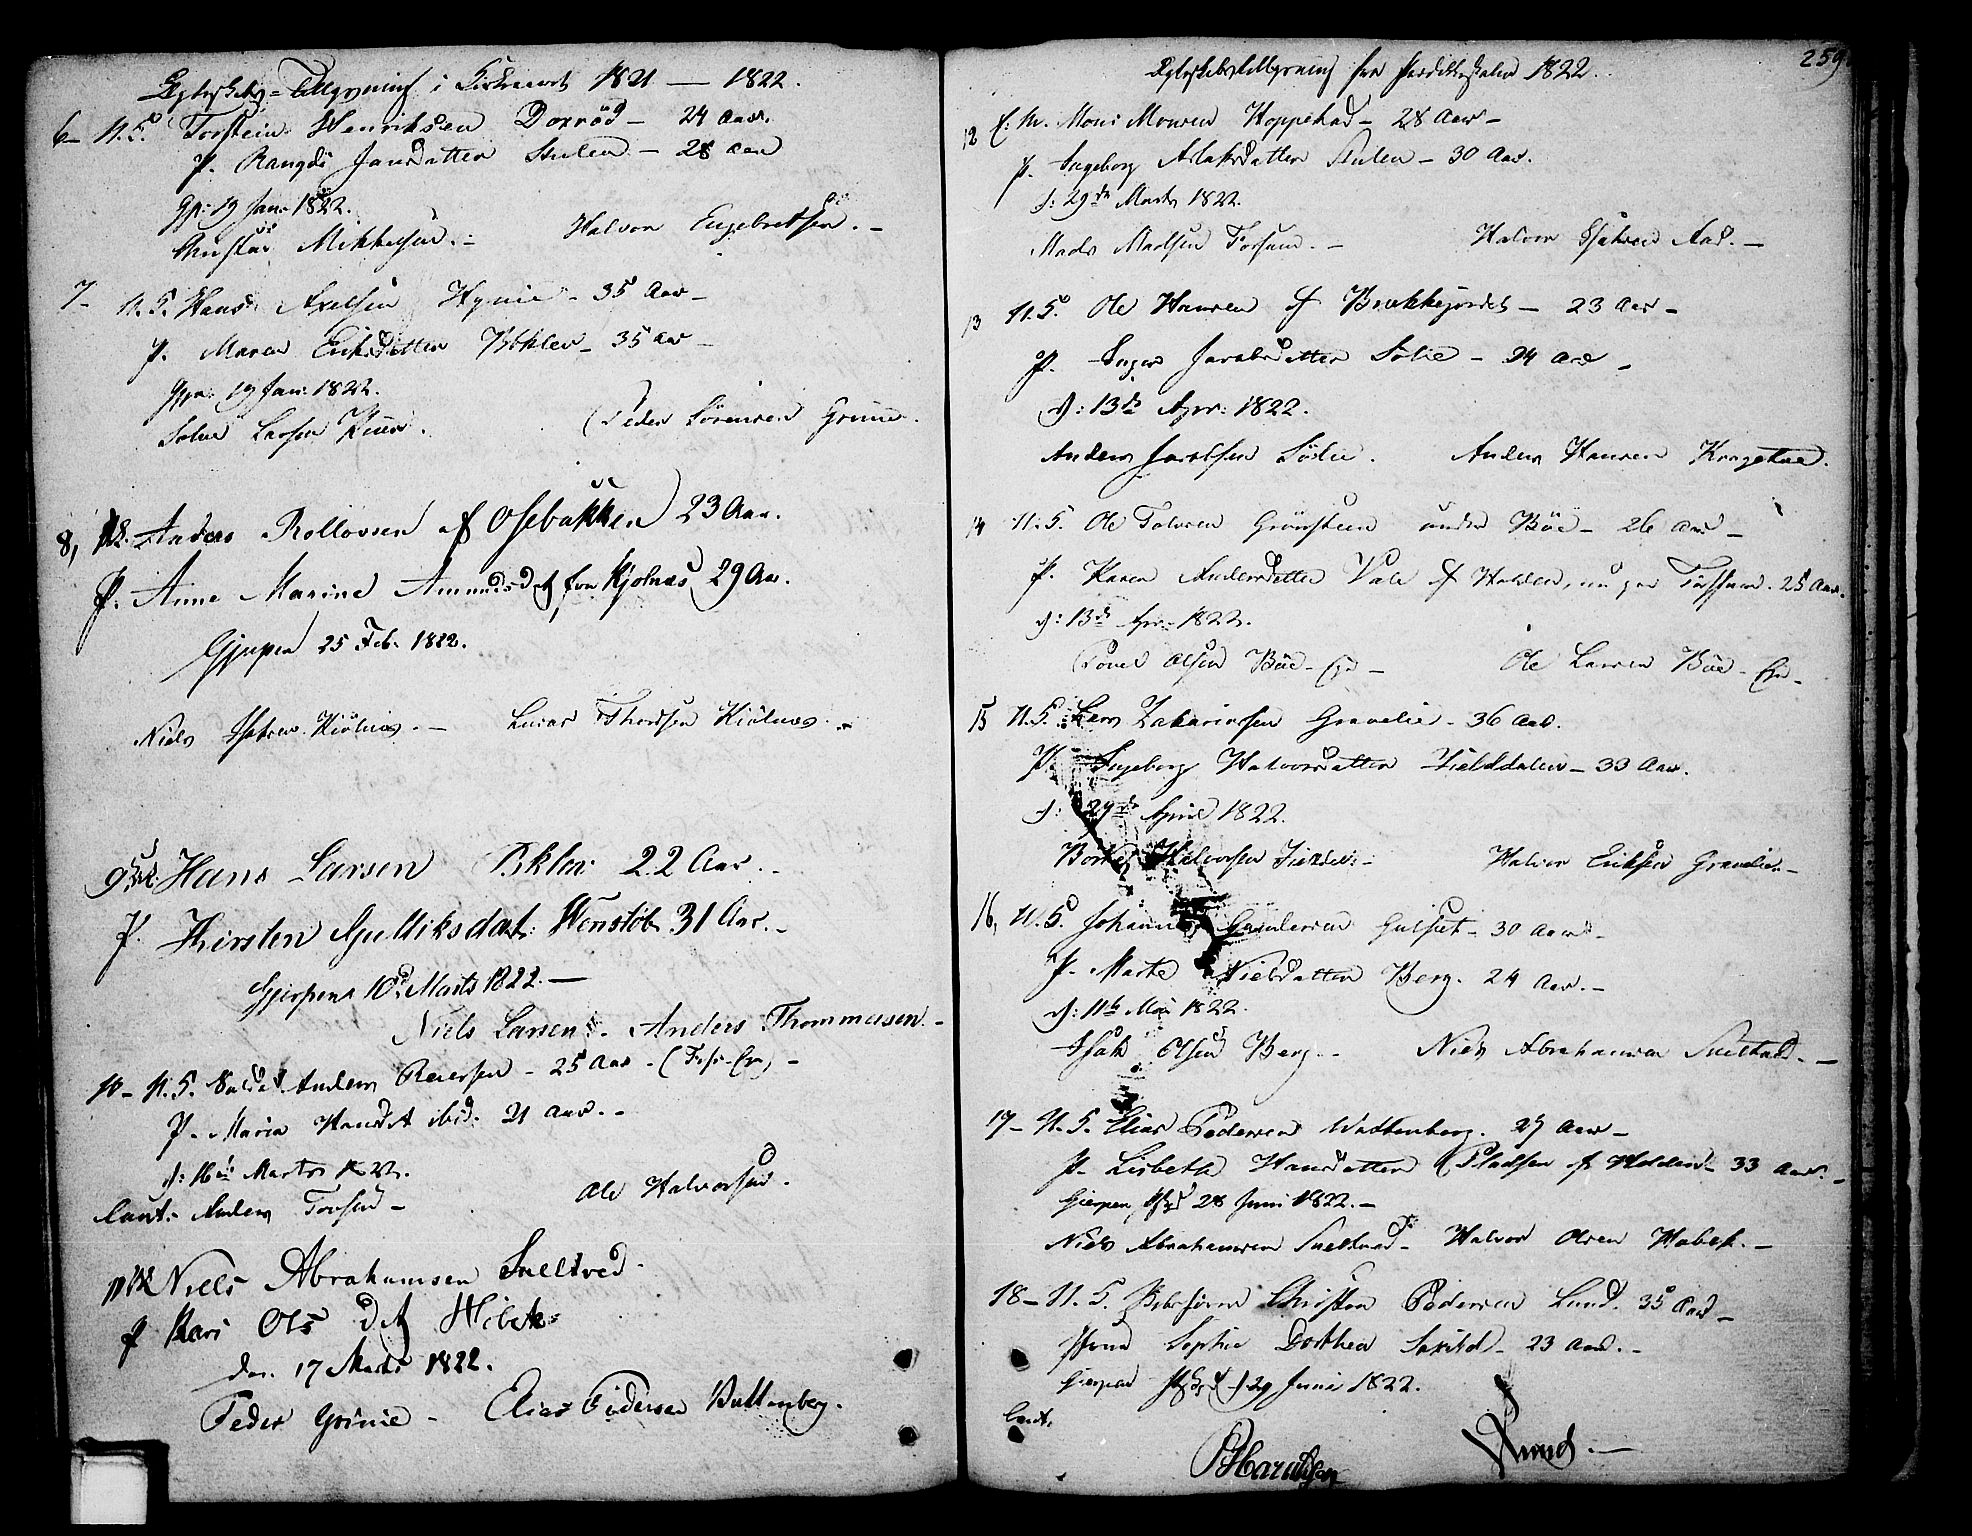 Egteskabs-Tillysning i Kirkeaaret 1821 — 1822.
6- U. S. Torstein Henriksen Doxrød - 24 Aar.
P. Rangdi Jansdatter Stulen - 28 Aar
Gp: 19 Jan: 1822.
Mikkelsen. - Halvor Engebretsen. -
7- U. S. Hans Axelsen Hynie - 35 Aar -
P. Maren Eriksdatter Bøhlev - 35 Aar -
Gp: 19 Jan: 1822.
Larsen Peder Sörensen Grinie.
8, Anders Rollovsen af Osebakken 23 Aar.
P. Anne Marine Amundsd. fra Kjølnæs 29 Aar.
Gjerpen 25 Feb. 1822.
Niels Isaksen Kiölnæs. - Lucas Thordsen Kiölnæs. -
9, Hans Larsen Bklev 22 Aar. -
P. Kirsten Gullliksdat: Wenstöb 31 Aar. -
Gjerpens 10d Marts 1822. -
Niels Larsen. Anders Thommesen. -
10- U. S. Soldat Anders Reiersen - 25 Aar -
P. Maria Hansd. ibid: 21 Aar. -
d: 16de Marts 1822.
Caut: Anders Ole Halvorsen.
11 Niels Abrahamsen Sneltved.
P Kari Ols d. Hibek
den 17 Marts 1822.
Peder Grinie - Elias Pedersen Wattenberg.
259
Egteskabs Tillysning fra 1822.
12 E. M. Mons Monsen Hoppestad - 28 Aar -
P. Ingeborg Aslaksdatter Stulen - 30 Aar.
d: 29de Marts 1822.
Mads Madsen Fossum. - Halvor Isaksen Aas. -
13 U. S. Ole Hansen af Brækkejordet - 23 Aar -
P. Inger Jacobsdatter Solie - 24 Aar -
d: 13de Apr: 1822.
Anders Jacobsen Sölie. Anders Hansen
14 U. S. Ole Talvsen Grönsteen under Böe - 26 Aar -
P. Karen Andersdatter Vale af Holden, nu paa Fossum. 25 Aar.
d: 13de Apr: 1822.
Povel Olsen Böe - Ole Larsen Böe -
15 U. S. Lars Zakariasen Gravelie - 36 Aar.
P. Ingeborg Halvorsdatter Fielddalen - 33 Aar.
d: 29de April 1822.
Halvorsen Halvor Eriksen Gravelie. -
16, U. S. Johannes Gundersen Gulset - 30 Aar -
P. Marte Nielsdatter Berg. 24 Aar. -
d: 11te Mai 1822.
Isak Olsen Berg. - Niels Abrahamsen Sneltved. -
17- U. S. Elias Pedersen Wattenberg. 27 Aar -
P. Lisbeth Hansdatter Pladsen af Holden - 33 Aar. -
Gierpen 28 Juni 1822. -
Niels Abrahamsen Sneltved - Halvor Olsen Hobek. -
18- U. S. Christen Pedersen Lund. 35 Aar -
Jfrue Sophie Dorthea - 23 Aar. -
Gierpen d 29 Juni 1822.
Caut.